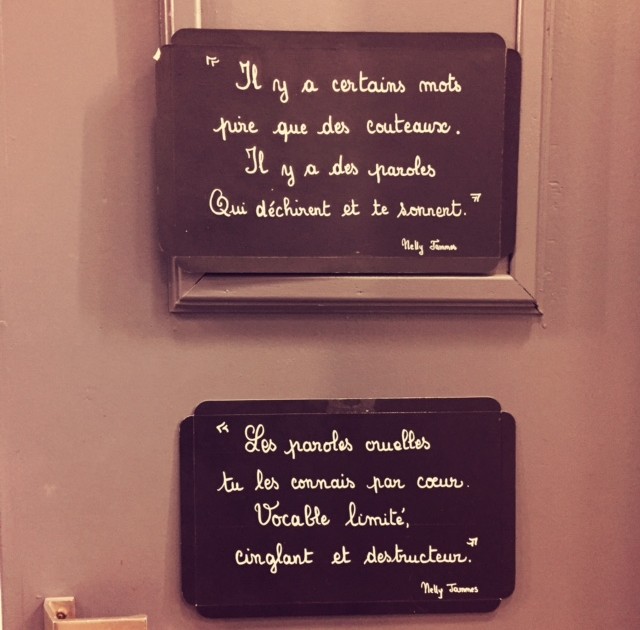 " Il y a certains mots
pire que des couteaux.
Il y a des paroles
Qui déchirent et te sonnent. "
Nelly Jammes
" Les paroles cruelles
tu les connais par cœur.
Vocable limité,
cinglant et destructeur. "
Nelly Jammes